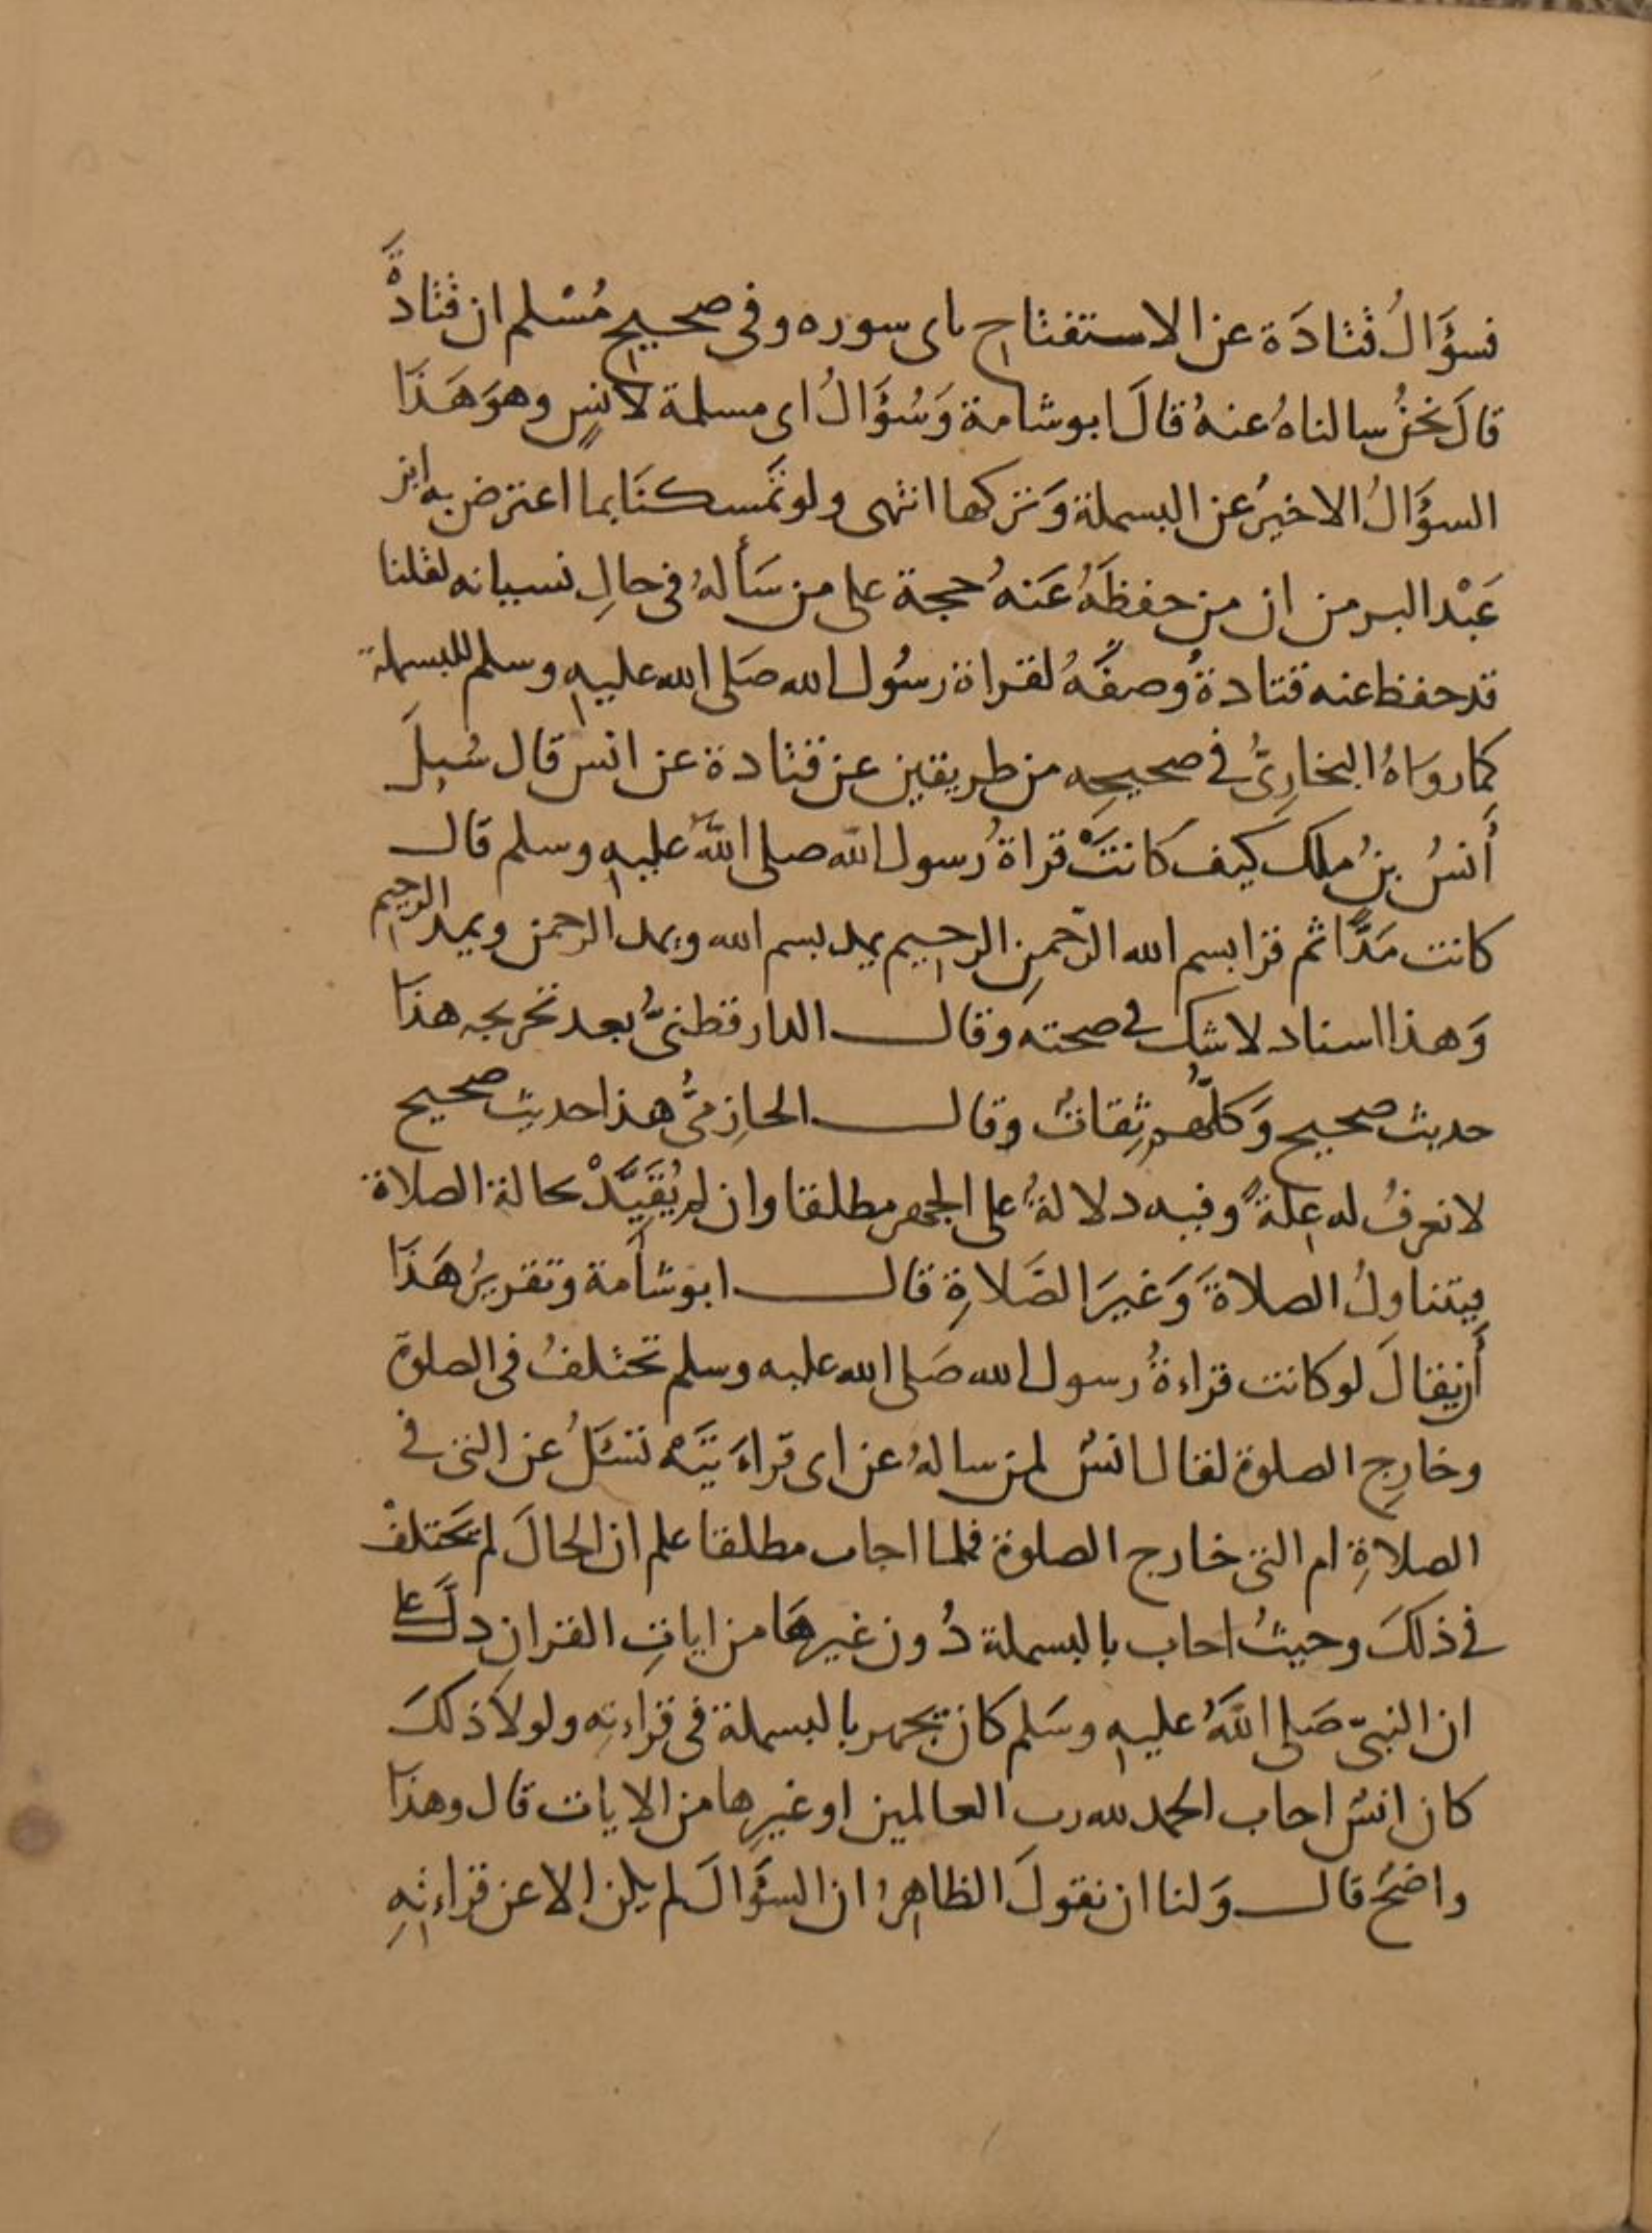 فسؤَالُ قتادَة عن الاستفتاح باى سوره وفى صحيح مُسْلم ان قتادةَ
قالَ نحنُ سالناهُ عنهُ قالَ ابوشامة وَسُؤَالُ ابى مسلمة لانسٍ وهوَ هَذَا
السؤَالُ الاخيرُ عن البسملة وَتركها انتهى ولو تمَسكنَا بما اعترض به ابن
عَبْد البر من ان من حفظَهُ عَنهُ حجة على من سَألهُ فى حالِ نسيانه لقلنا
قد حفظ عنه قتادة وُصفَهُ لقراة رسُول الله صَلى الله عليه وسلم للبسملة
كما روَاهُ البخارِىُّ فى صحيحِه من طريقين عن قتادة عن انس قال سُيِلَ
أَنسُ بنُ ملك كيف كانَتْ قراةُ رسول الله صلى اللهُ عليه وسلم قال
كانت مَدًّا ثم قرا بسم الله الرّحمنِ الرحيم يمد بسم الله ويمد الرحمن ويمد الرحيم
وَهذا اسناد لا شك فى صحته وَقال الدارقطنىُّ بعد تخريجه هذَا
حديث صحيح وَكلّهُم ثِقاتٌ وقال الحازِمىُّ هذا حديث صحيح
لا نعرفُ له عِلةً وفيه دلالةٌ على الجهر مطلقا وان لم يُقَيَّدْ بحالة الصلاة
فيتناولُ الصلاةَ وَغيرَ الصَلاةِ قال ابوشامة وتقريرُ هَذَا
أَن يقالَ لوكانت قراءةُ رسول الله صَلى الله عليه وسلم تختلفُ فى الصلوة
وخارِج الصلوة لقال انسٌ لمن سالهُ عن اى قراءَ تَيْه تسْئَلُ عن التى فى
الصلاةِ ام التى خارج الصلوة فلما اجاب مطلقا علم ان الحالَ لم تختلفْ
فى ذلكَ وحيثُ اجاب بالبسملة دُون غيرهَا من اياتِ القران دلَّ على
ان النبىّ صَلى اللهُ عليه وسَلم كان يجهر بالبسملة فى قراءتِه ولولاَ ذلكَ
كان انسٌ اجاب الحمد لله رب العالمين اوغيرِها من الايات قال وهذَا
واضحٌ قال وَلنا ان نقولَ الظاهرُ ان السؤَالَ لم يكن الا عن قراءتِهِ